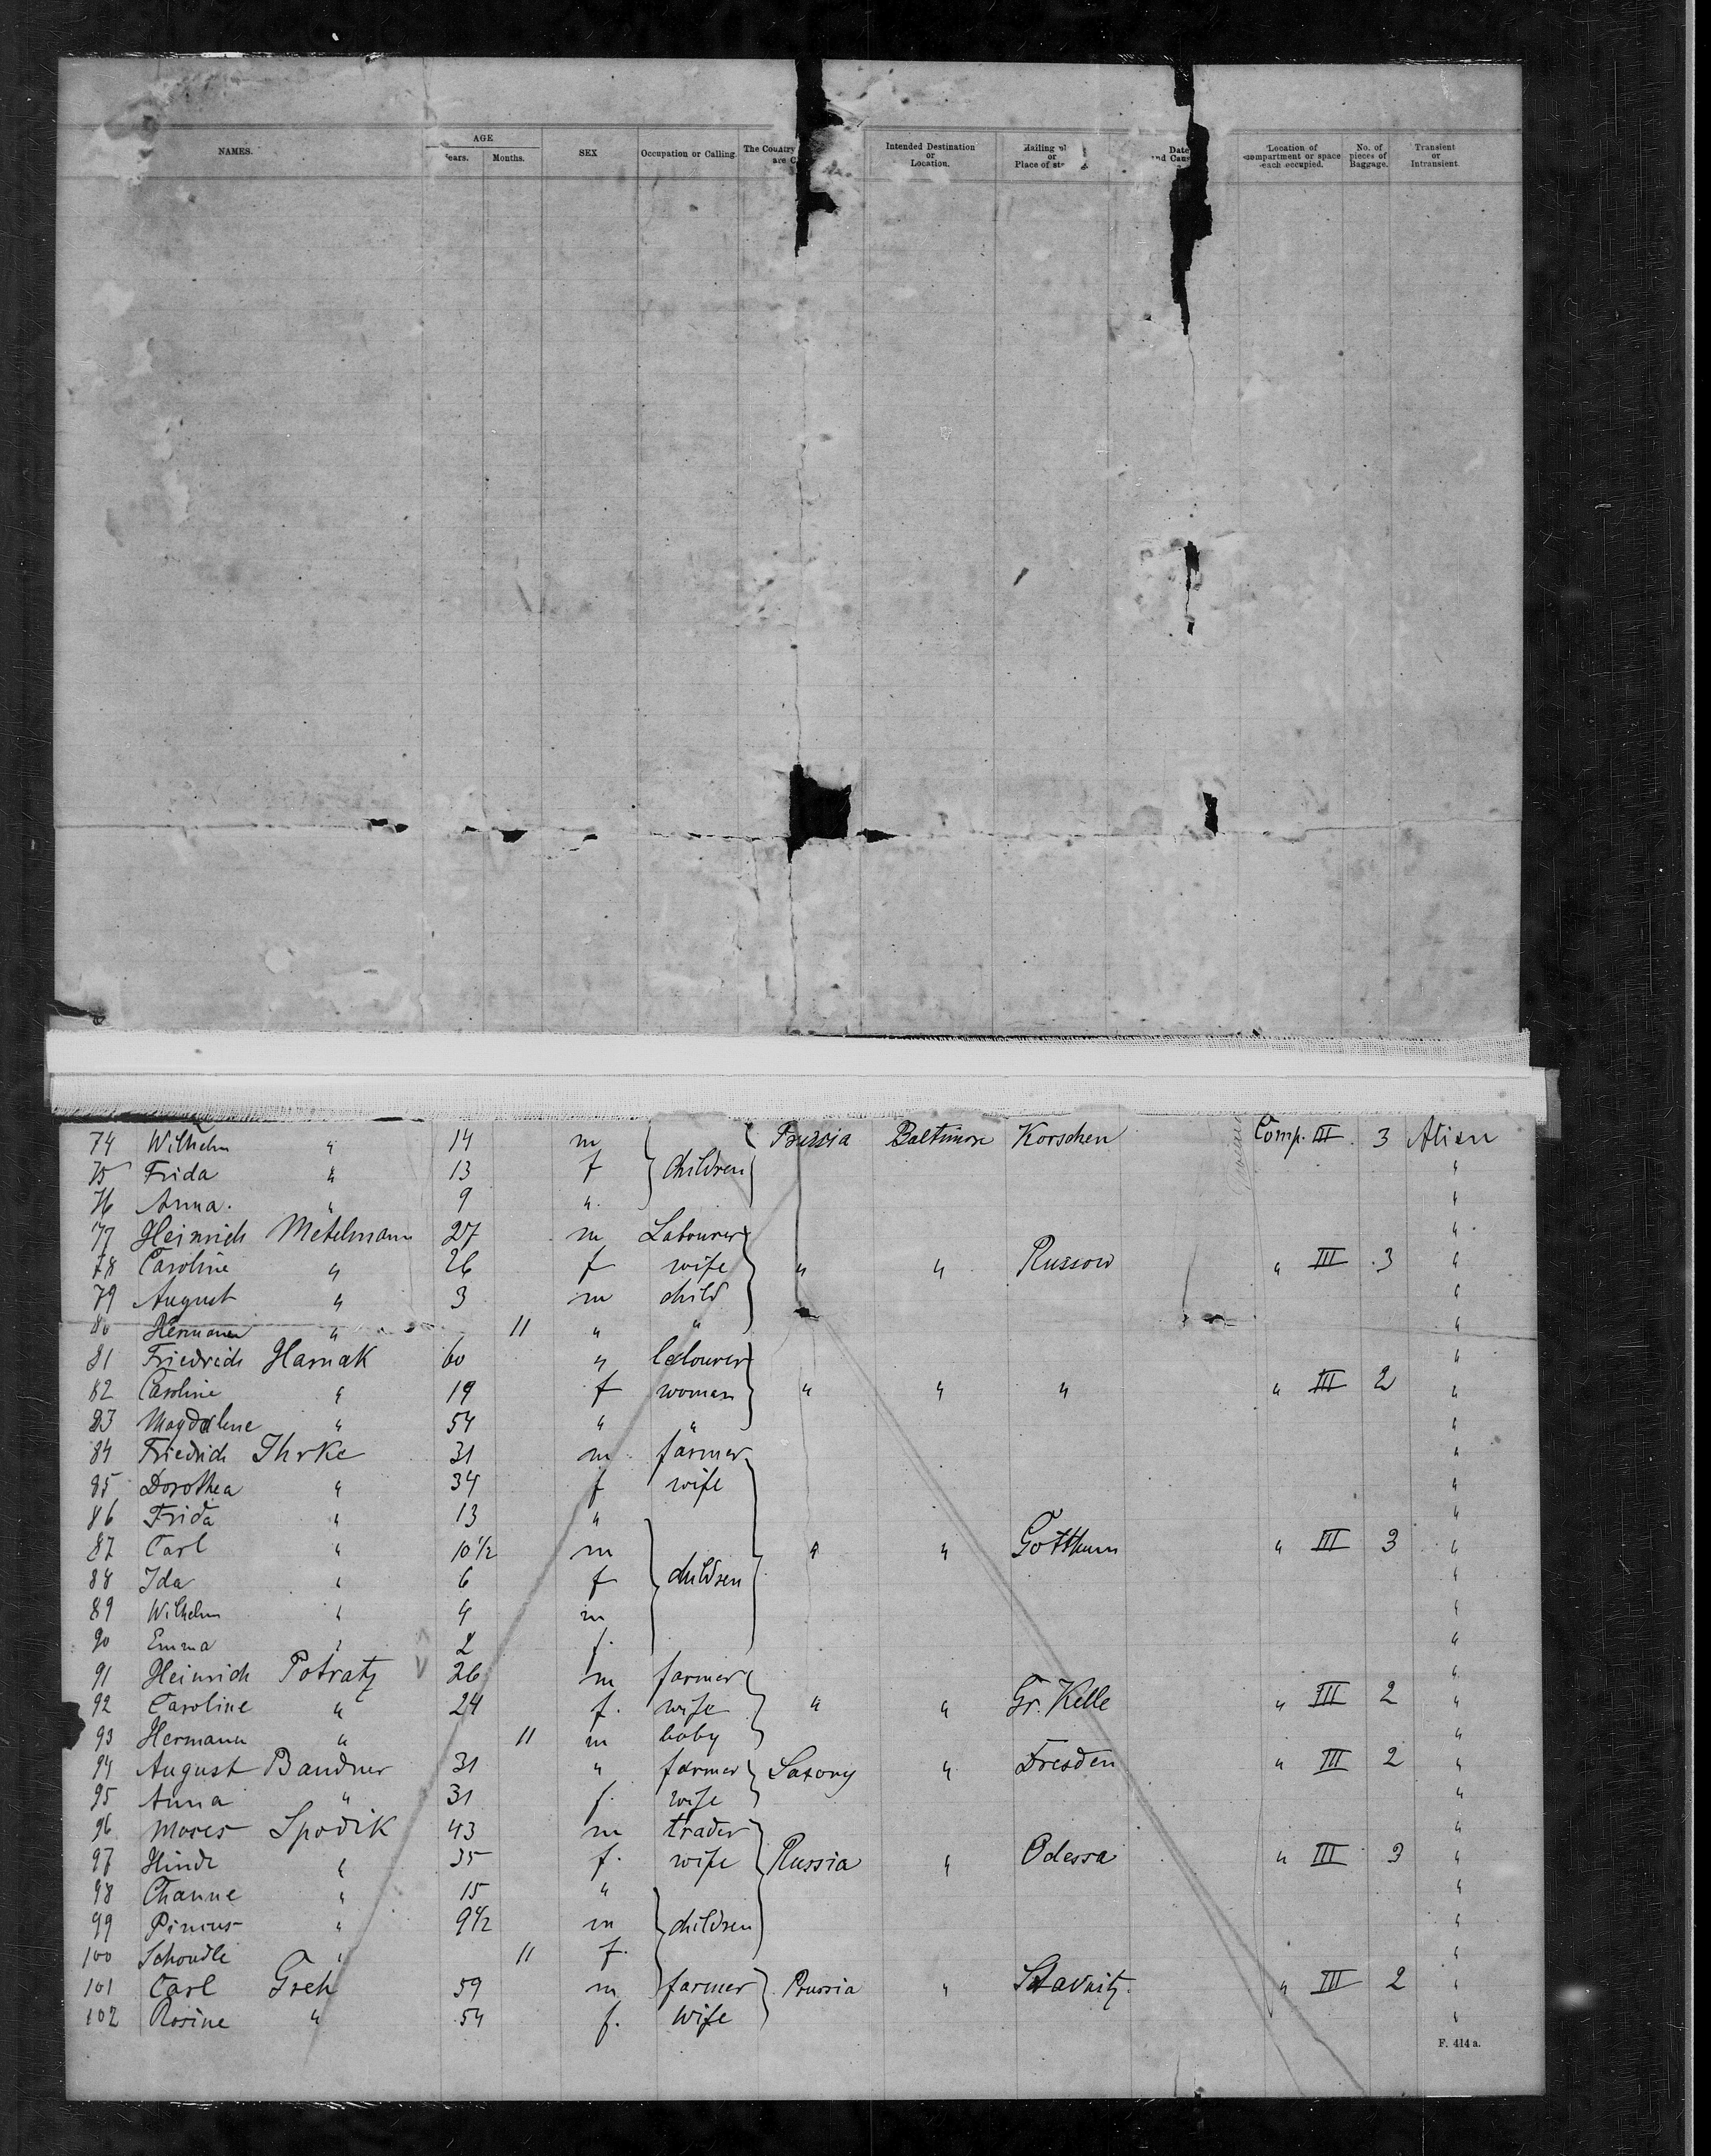 NAMES. AGE SEX Occupation or Calling. The Country Intended Destination or Location. Mailing or Place of Date and Location of compartment or space each occupied. No. of pieces of Baggage. Transient or Intransient.
Years. Months.
74 Wilhelm " 14 m Prussia Baltimore Korschen Comp. III 3 Alien
75 Frida " 13 f children "
76 Anna. " 9 " "
77 Heinrich Metelmann 27 m Labourer "
78 Caroline " 26 f wife " " Russow " III 3 "
79 August " 3 m child "
80 Hermann " 11 " " "
81 Friedrich Harnak 60 " labourer "
82 Caroline " 19 f woman " " " " III 2 "
83 Magdalene " 54 " " "
84 Friedrich Ihrke 31 m farmer "
85 Dorothea " 34 f wife "
86 Frida " 13 " "
87 Carl " 10 1/2 m " " Gotthun " III 3 "
88 Ida " 6 f children "
89 Wilhelm " 4 m "
90 Emma " 2 f. "
91 Heinrich Potratz 26 m farmer "
92 Caroline " 24 f. wife " " Gr. Kelle " III 2 "
93 Hermann " 11 m baby "
94 August Bandner 31 " farmer Saxony " Dresden " III 2 "
95 Anna " 31 f. wife "
96 Moses Spodik 43 m trader "
97 Hinde " 35 f. wife Russia " Odessa " III 3 "
98 Channe " 15 " "
99 Pincus " 9 1/2 m children "
100 Scheudle " 11 f. "
101 Carl Greh 59 m farmer Prussia " " III 2 "
102 Rosine " 54 f. wife "
F. 414 a.